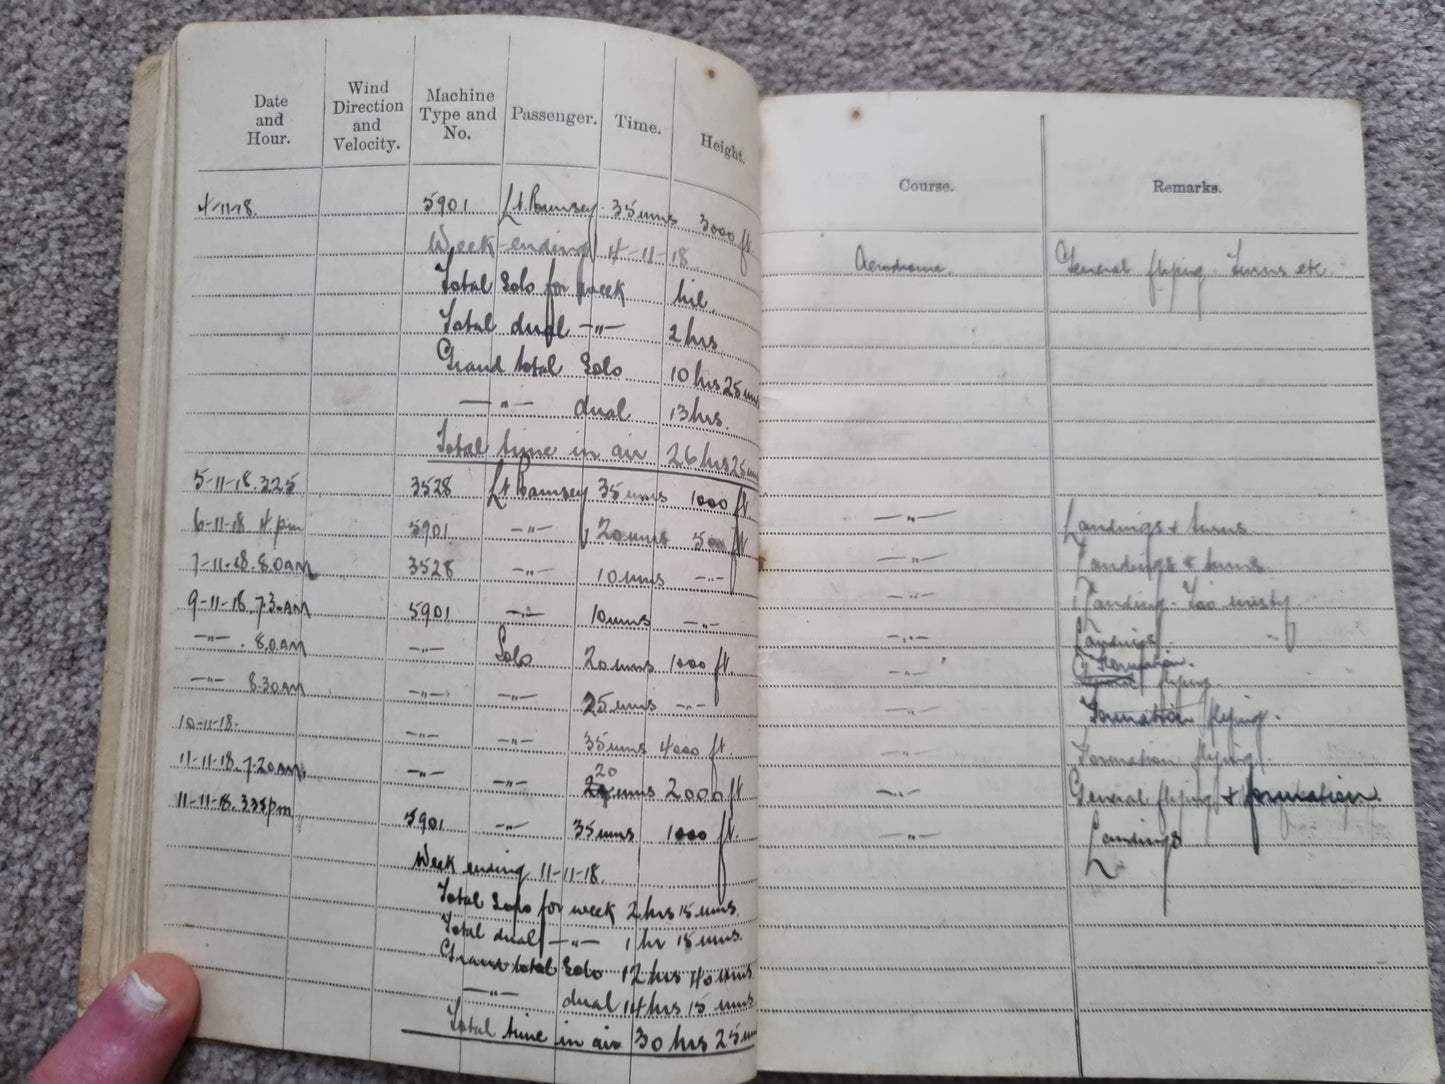 Date and Hour. Wind Direction and Velocity. Machine Type and No. Passenger. Time. Height. Course. Remarks.
4-11-18. 5901 Lt. Ramsey. 35 mins 3000 ft. Aerodrome. General flying. Turns etc.
Week-ending 4-11-18.
Total Solo for week nil.
Total dual -"- 2 hrs
Grand total Solo 10 hrs 25 mins
-"- dual 13 hrs.
Total time in air 26 hrs 25 mins
5-11-18. 3.25 3528 Lt Ramsey 35 mins 1000 ft -"- Landings & turns
6-11-18 4 pm 5901 -"- 20 mins 500 ft -"- Landings & turns
7-11-18. 8.0 AM 3528 -"- 10 mins -"- -"- Landing. Too misty.
9-11-18. 7.30 AM 5901 -"- 10 mins -"- -"- Landings.
-"- . 8.0 AM -"- Solo 20 mins 1000 ft. -"- Formation. flying.
-"- 8.30 AM -"- -"- 25 mins -"- -"- Formation flying.
10-11-18. -"- -"- 35 mins 4000 ft. Formation flying.
11-11-18. 7.20 AM. -"- -"- 20 mins 2000 ft -"- General flying & formation.
11-11-18. 3.35 pm 5901 -"- 35 mins 1000 ft. -"- Landings
Week ending 11-11-18.
Total Solo for week 2 hrs 15 mins.
Total dual -"- 1 hr 15 mins.
Grand total Solo 12 hrs 40 mins.
-"- dual 14 hrs 15 mins.
Total time in air 30 hrs 25 mins